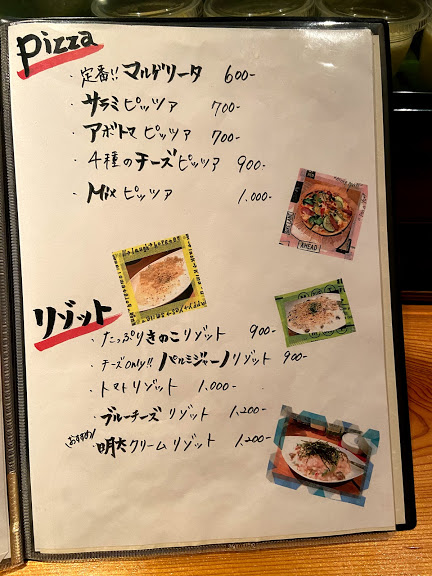 Pizza
・定番!! マルゲリータ 600-
・サラミピッツァ 700-
・アボトマピッツァ 700-
・4種のチーズピッツァ 900-
・Mixピッツァ 1.000-
リゾット
・たっぷりきのこリゾット 900-
・チーズonly!! パルミジャーノリゾット 900-
・トマトリゾット 1.000-
・ブルーチーズリゾット 1.200-
おすすめ ・明太クリームリゾット 1.200-
AHEAD